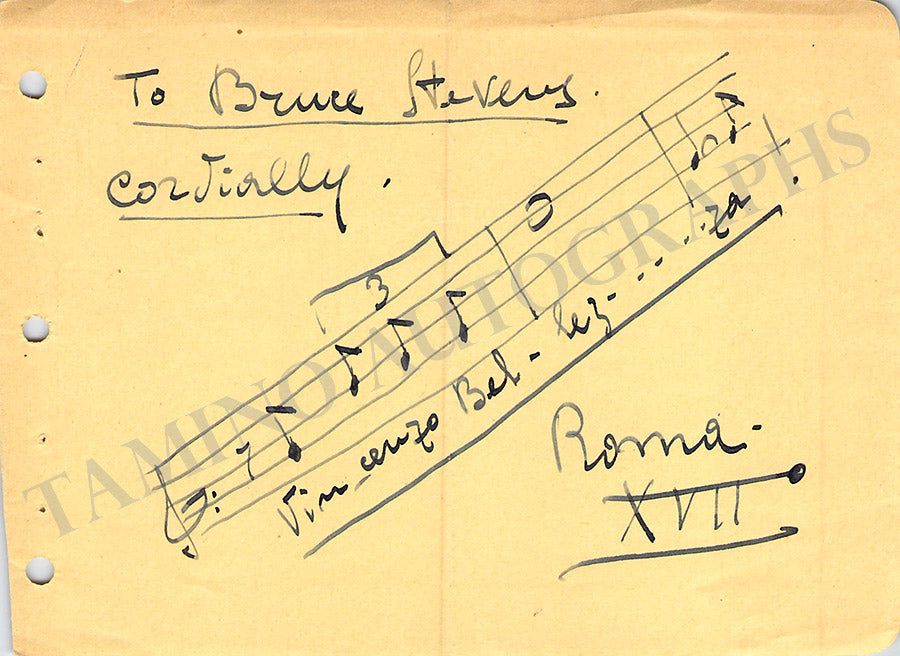 To Bruce Stevens.
cordially.
3
Vin-cenzo Bel-lez-....za.
Roma-
XVII
TAMINO AUTOGRAPHS